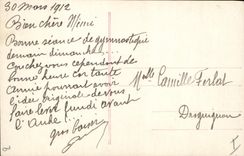 30 Mars 1912
Bien chère Mémé
Bonne séance de gymnastique
demain dimanche!...
cependant de
bonne heure car tante
Annie pourrait avoir
l'idée originale de vous
faire lever lundi avant
l'Aube!
gros baiser
Melle Camille Forlat